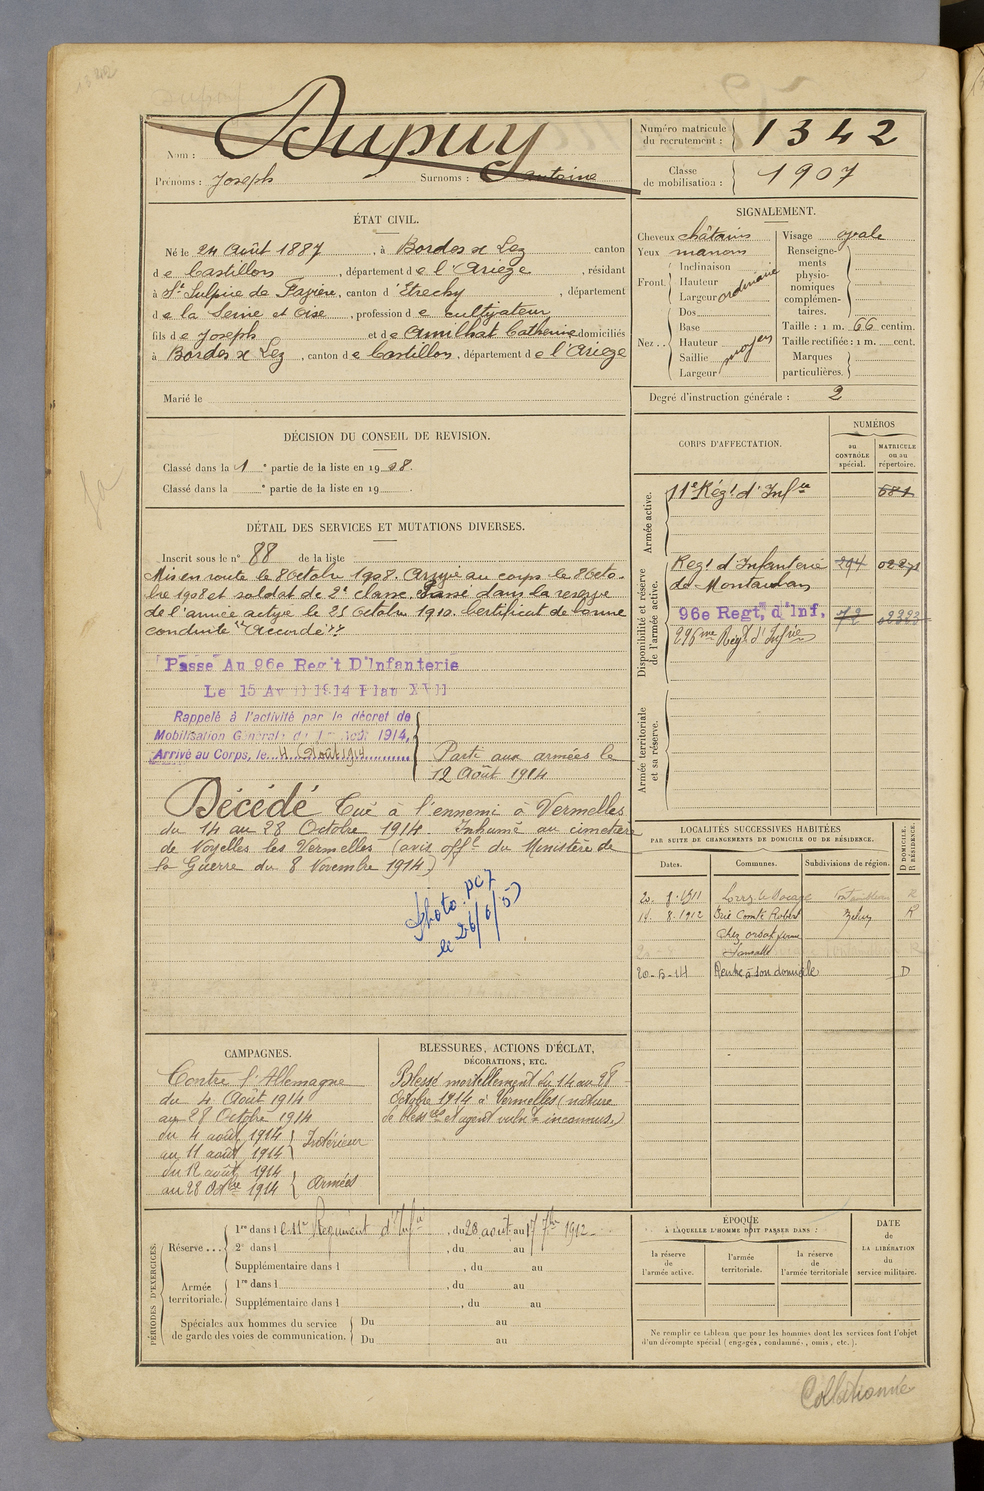 Nom : Dupuy
Prénoms : Joseph Surnoms : Antoine
Numéro matricule du recrutement : 1342
Classe de mobilisation : 1907
ÉTAT CIVIL.
Né le 24 Août 1887, à Bordes s Lez canton
de Castillon, département de l'Ariège, résidant
à St Sulpice de Favière, canton d'Etrechy, département
de la Seine et Oise, profession de cultivateur
fils de Joseph et de Amilhat Catherine domiciliés
à Bordes s Lez, canton de Castillon, département de l'Ariège
Marié le
SIGNALEMENT.
Cheveux châtains
Yeux marrons
Front. Inclinaison
Hauteur
Largeur
ordinaire
Nez .. Dos
Base
Hauteur
Saillie
Largeur
moyen
Visage ovale
Renseignements physionomiques complémentaires.
Taille : 1 m. 66 centim.
Taille rectifiée : 1 m. cent.
Marques particulières.
Degré d'instruction générale : 2
DÉCISION DU CONSEIL DE REVISION.
Classé dans la 1 e partie de la liste en 1908.
Classé dans la e partie de la liste en 19 .
DÉTAIL DES SERVICES ET MUTATIONS DIVERSES.
Inscrit sous le n° 88 de la liste
Mis en route le 8 Octobre 1908. Arrivé au corps le 8 Octo-
bre 1908 et soldat de 2e classe. Passé dans la réserve
de l'armée active le 25 Octobre 1910. Certificat de bonne
conduite "Accordé"
Passé Au 96e Reg't D'Infanterie
Le 15 Avril 1914 Plan XVII
Rappelé à l'activité par le décret de
Mobilisation Générale du 1er Août 1914,
Arrivé au Corps, le 4 Août 1914
Parti aux armées le
12 Août 1914
Décédé Tué à l'ennemi à Vermelles
du 14 au 28 Octobre 1914. Inhumé au cimetière
de Noyelles les Vermelles (avis offl du Ministère de
la Guerre du 8 Novembre 1914)
Photo. PC7
le 26/6/5
CORPS D'AFFECTATION.
NUMÉROS
au CONTRÔLE spécial.
MATRICULE ou au répertoire.
Armée active.
11e Régt d'Infie 681
Disponibilité et réserve de l'armée active.
Regt d'Infanterie 294
de Montauban
96e Regt, d'Inf, 72
296me Regt d'Infrie
Armée territoriale et sa réserve.
LOCALITÉS SUCCESSIVES HABITÉES
PAR SUITE DE CHANGEMENTS DE DOMICILE OU DE RÉSIDENCE.
Dates. Communes. Subdivisions de région. D DOMICILE. R RÉSIDENCE.
20. 8. 1911 Lorrez le Bocage R
14. 8. 1912 Brie Comte Robert R
Chez ferme
20-5-14 Rentré à son domicile D
CAMPAGNES.
Contre l'Allemagne
du 4 Août 1914
au 28 Octobre 1914
du 4 août 1914
au 11 août 1914 Intérieur
du 12 août 1914
au 28 Octbre 1914 Armées
BLESSURES, ACTIONS D'ÉCLAT,
DÉCORATIONS, ETC.
Blessé mortellement du 14 au 28
Octobre 1914 à Vermelles (nature
de blessres et agent vulnt inconnus)
PÉRIODES D'EXERCICES.
Réserve ... 1re dans le 11e Régiment d'Infie, du 28 août au 17 7bre 1912
2e dans l , du au
Supplémentaire dans l , du au
Armée territoriale. 1re dans l , du au
Supplémentaire dans l , du au
Spéciales aux hommes du service
de garde des voies de communication. Du au
Du au
ÉPOQUE
À LAQUELLE L'HOMME DOIT PASSER DANS :
la réserve de l'armée active.
l'armée territoriale.
la réserve de l'armée territoriale
DATE de LA LIBÉRATION du service militaire.
Ne remplir ce tableau que pour les hommes dont les services font l'objet
d'un décompte spécial (engagés, condamnés, omis, etc.).
Collationné